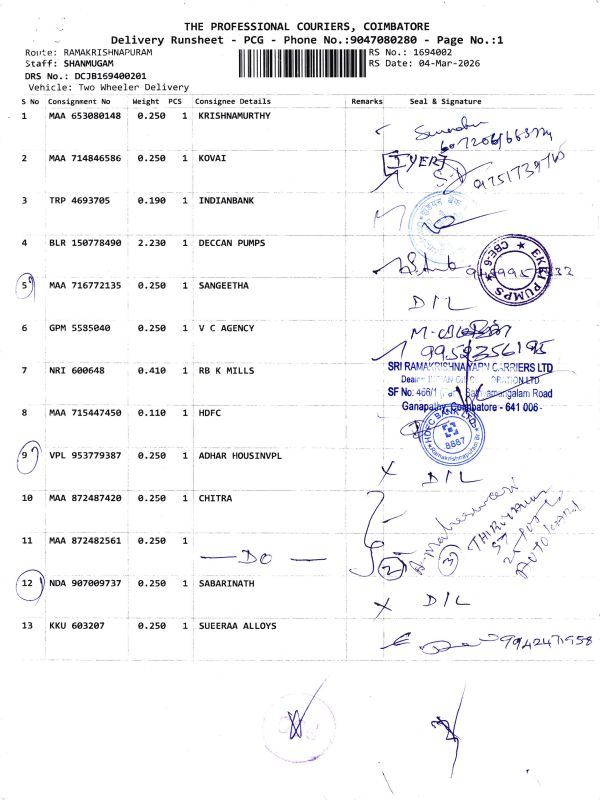 THE PROFESSIONAL COURIERS, COIMBATORE
Delivery Runsheet - PCG - Phone No.:9047080280 - Page No.:1
Route: RAMAKRISHNAPURAM
RS No.: 1694002
Staff: SHANMUGAM
RS Date: 04-Mar-2026
DRS No.: DCJB169400201
Vehicle: Two Wheeler Delivery
S No Consignment No Weight PCS Consignee Details Remarks Seal & Signature
1 MAA 653080148 0.250 1 KRISHNAMURTHY
2 MAA 714846586 0.250 1 KOVAI
IYER
3 TRP 4693705 0.190 1 INDIANBANK
4 BLR 150778490 2.230 1 DECCAN PUMPS
EKKI PUMPS CBE-6
5 MAA 716772135 0.250 1 SANGEETHA
D/L
6 GPM 5585040 0.250 1 V C AGENCY
9952356195
7 NRI 600648 0.410 1 RB K MILLS
SRI RAMAKRISHNA YARN CARRIERS LTD
SF No: 466/1
Sathyamangalam Road
Ganapathy, Coimbatore - 641 006
8 MAA 715447450 0.110 1 HDFC
HDFC BANK LTD
8887
Ramakrishnapuram Br
9 VPL 953779387 0.250 1 ADHAR HOUSINVPL
X D/L
10 MAA 872487420 0.250 1 CHITRA
A. Maheswari
11 MAA 872482561 0.250 1
DO
2
3
12 NDA 907009737 0.250 1 SABARINATH
X D/L
13 KKU 603207 0.250 1 SUEERAA ALLOYS
9942471958